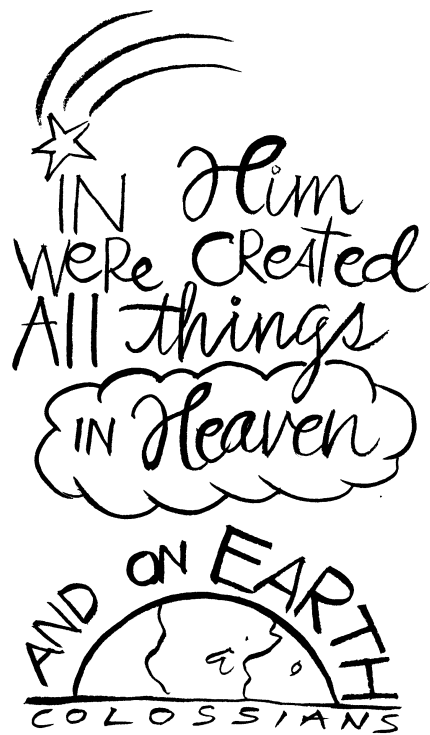 IN Him
were created
All things
IN Heaven
AND ON EARTH
COLOSSIANS